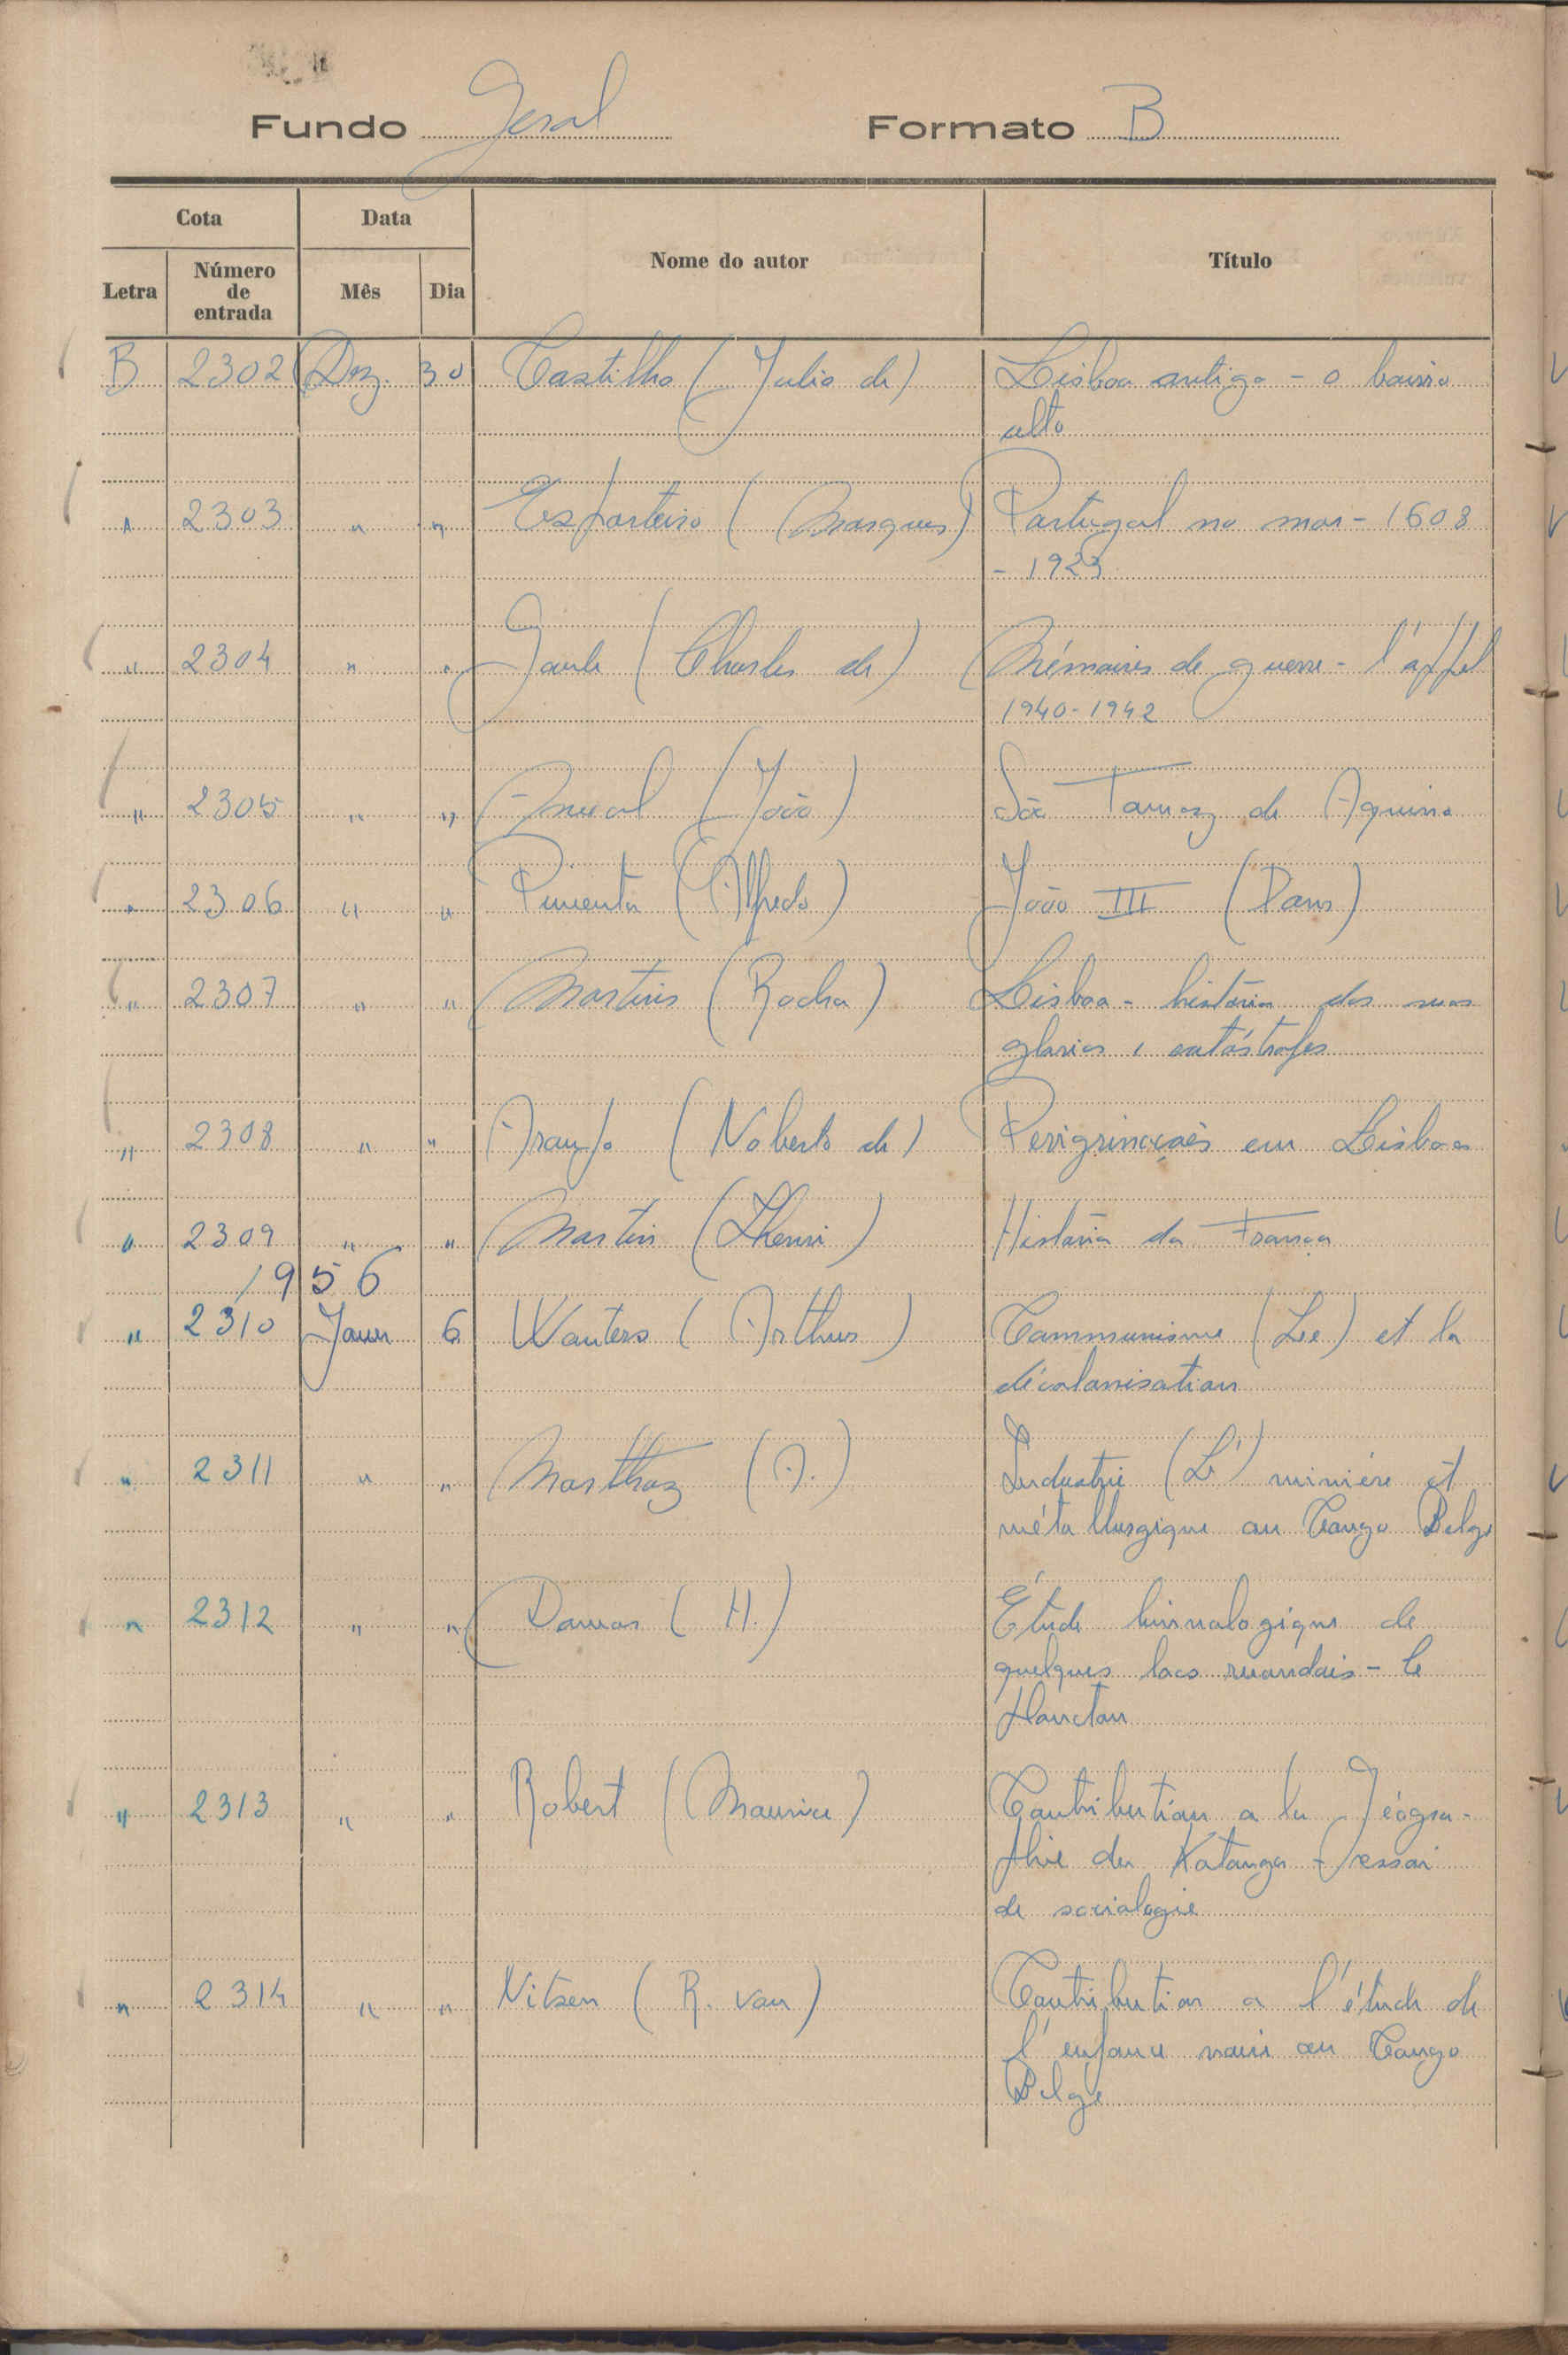 Fundo Geral Formato B
Cota Data Nome do autor Título
Letra Número de entrada Mês Dia
B 2302 Dez. 30 Castilho (Julio de) Lisboa antiga - o bairro
alto
" 2303 " " Esparteiro (Marques) Portugal no mar - 1608
- 1923
" 2304 " " Gaule (Charles de) Mémoires de guerre - l'appel
1940-1942
" 2305 " " Ameal (João) São Tomaz de Aquino
" 2306 " " Pimenta (Alfredo) João III (Dom)
" 2307 " " Martins (Rocha) Lisboa - história das suas
glorias e catástrofes
" 2308 " " Araujo (Noberto de) Perigrinações em Lisboa
" 2309 " " Martin (Henri) História da França
1956
" 2310 Janr 6 Wauters (Arthur) Communisme (Le) et la
décolonisation
" 2311 " " Marthoz (A.) Industrie (L') minière et
métallurgique au Congo Belge
" 2312 " " Damas (H.) Étude limnologique de
quelques lacs ruandais - le
Plancton
" 2313 " " Robert (Maurice) Contribution a la Géogra-
phie du Katanga - essai
de sociologie
" 2314 " " Nitsen (R. van) Contribution a l'étude de
l'enfance noire au Congo
Belge